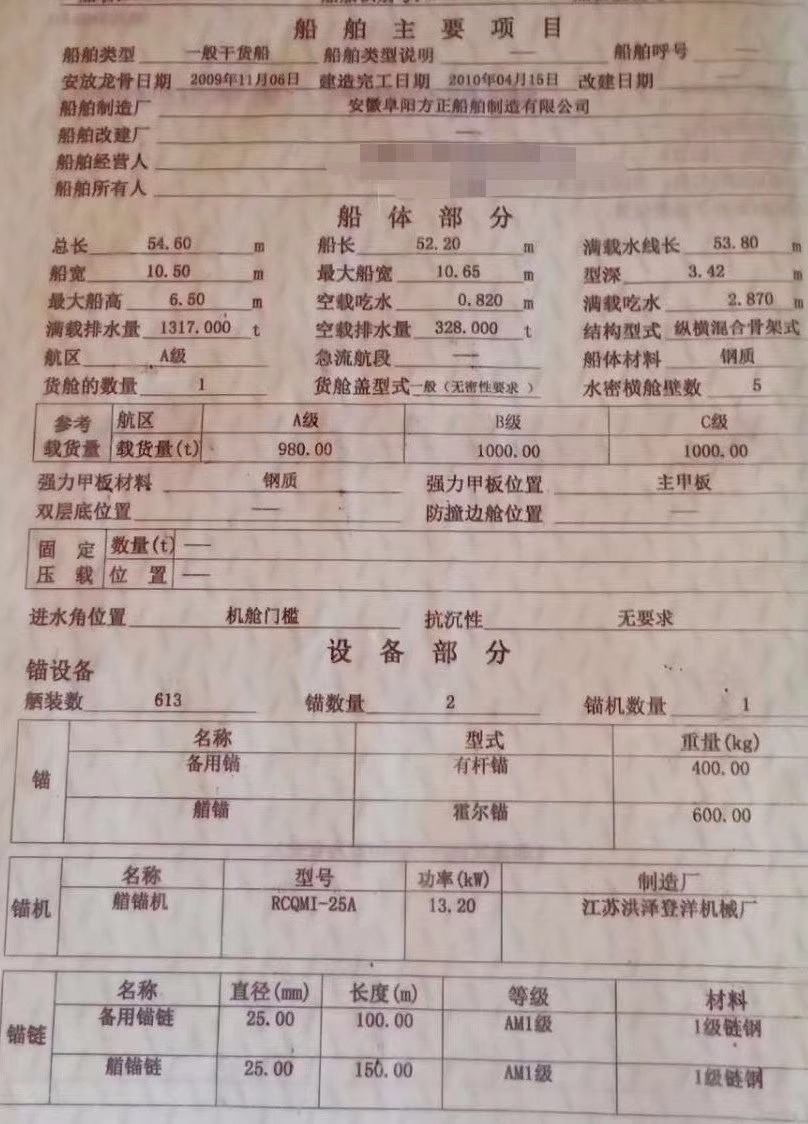 船舶主要项目
船舶类型 一般干货船 船舶类型说明 — 船舶呼号 —
安放龙骨日期 2009年11月06日 建造完工日期 2010年04月15日 改建日期
船舶制造厂 安徽阜阳方正船舶制造有限公司
船舶改建厂 —
船舶经营人
船舶所有人
船体部分
总长 54.60 m 船长 52.20 m 满载水线长 53.80 m
船宽 10.50 m 最大船宽 10.65 m 型深 3.42 m
最大船高 6.50 m 空载吃水 0.820 m 满载吃水 2.870 m
满载排水量 1317.000 t 空载排水量 328.000 t 结构型式 纵横混合骨架式
航区 A级 急流航段 — 船体材料 钢质
货舱的数量 1 货舱盖型式 一般（无密性要求 ） 水密横舱壁数 5
参考 航区 A级 B级 C级
载货量 载货量(t) 980.00 1000.00 1000.00
强力甲板材料 钢质 强力甲板位置 主甲板
双层底位置 — 防撞边舱位置 —
固定 数量(t) —
压载 位置 —
进水角位置 机舱门槛 抗沉性 无要求
设备部分
锚设备
舾装数 613 锚数量 2 锚机数量 1
名称 型式 重量(kg)
锚 备用锚 有杆锚 400.00
艏锚 霍尔锚 600.00
名称 型号 功率(kW) 制造厂
锚机 艏锚机 RCQMI-25A 13.20 江苏洪泽登洋机械厂
名称 直径(mm) 长度(m) 等级 材料
锚链 备用锚链 25.00 100.00 AM1级 1级链钢
艏锚链 25.00 150.00 AM1级 1级链钢